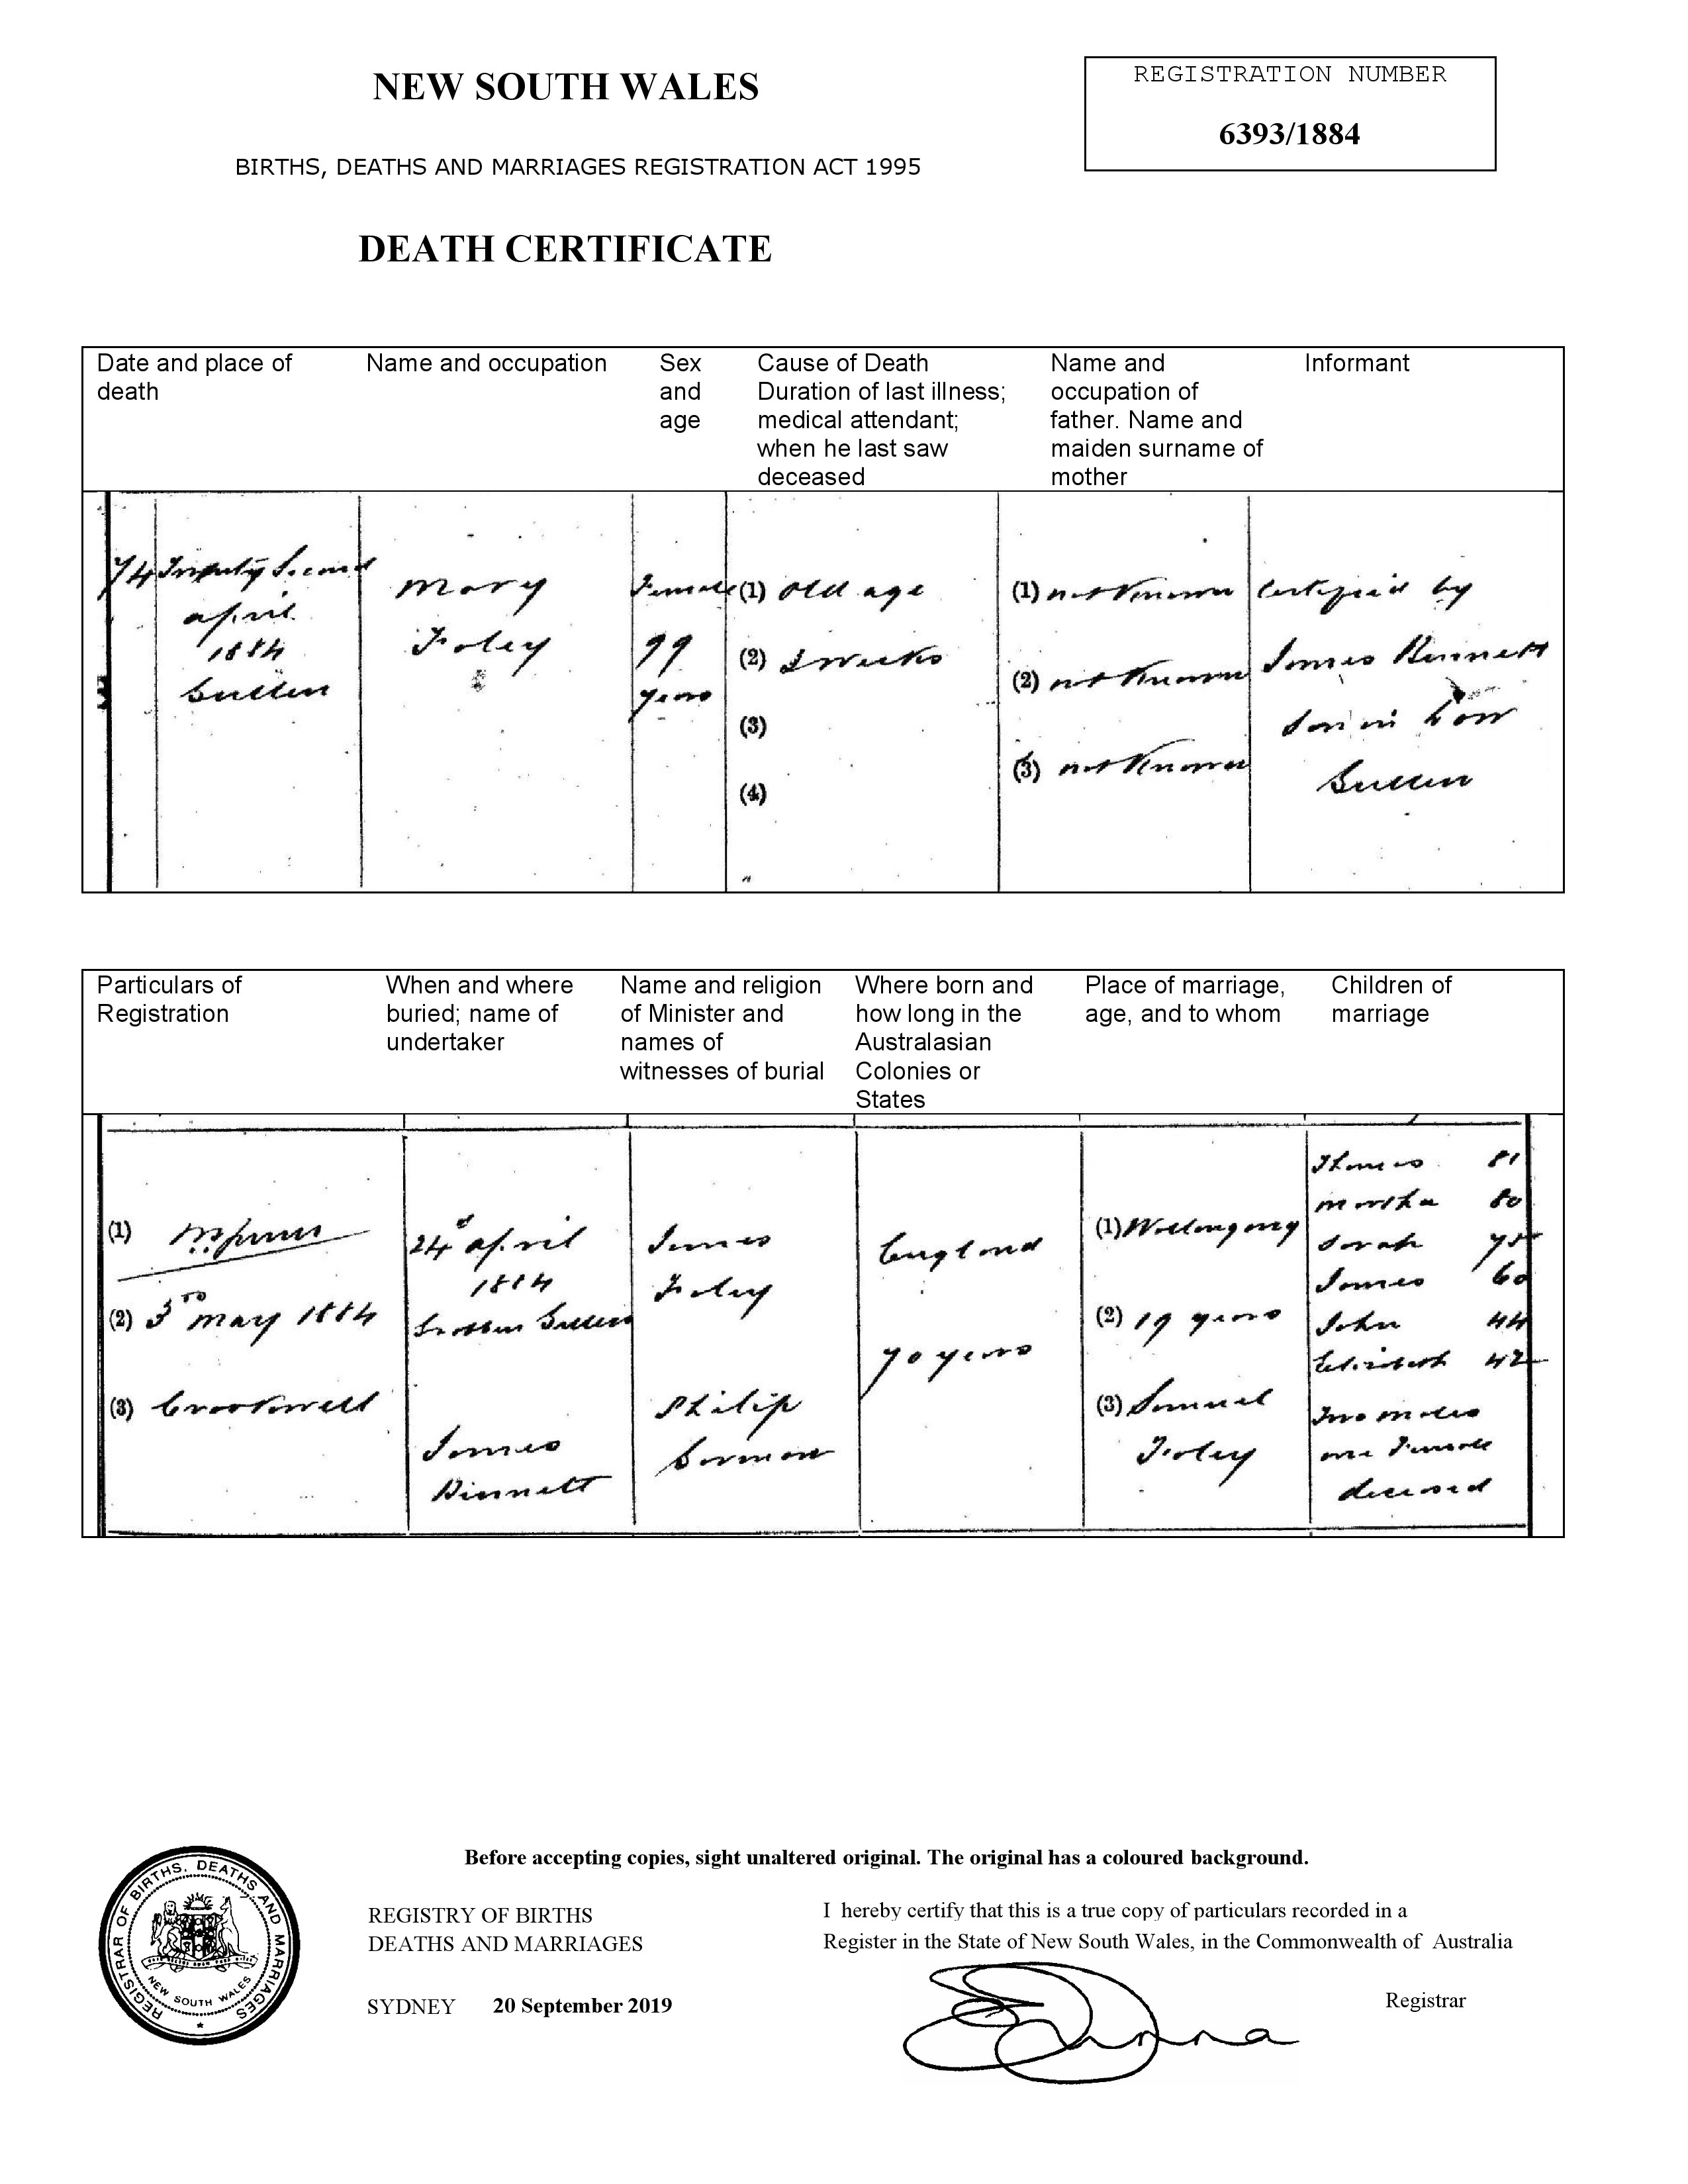 NEW SOUTH WALES
REGISTRATION NUMBER
6393/1884
BIRTHS, DEATHS AND MARRIAGES REGISTRATION ACT 1995
DEATH CERTIFICATE
Date and place of
death
Name and occupation
Sex
and
age
Cause of Death
Duration of last illness;
medical attendant;
when he last saw
deceased
Name and
occupation of
father. Name and
maiden surname of
mother
Informant
74 Twenty Second
april
1884
Mary
Foley
Female
99
years
(1) Old age
(2) weeks
(3)
(4)
(1) not Known
(2) not Known
(3) not Known
Certified by
James Bennett
Son in Law
Particulars of
Registration
When and where
buried; name of
undertaker
Name and religion
of Minister and
names of
witnesses of burial
Where born and
how long in the
Australasian
Colonies or
States
Place of marriage,
age, and to whom
Children of
marriage
(1)
(2) 3rd may 1884
(3) Crookwell
24 april
1884
James
Bennett
James
Foley
Philip
England
70 years
(1) Wollongong
(2) 19 years
(3) Samuel
Foley
Thomas 81
martha 80
Sarah 75
James 60
John 44
Elizabeth 42
Two males
one Female
deceased
Before accepting copies, sight unaltered original. The original has a coloured background.
REGISTRAR OF BIRTHS, DEATHS AND MARRIAGES
NEW SOUTH WALES
REGISTRY OF BIRTHS
DEATHS AND MARRIAGES
SYDNEY 20 September 2019
I hereby certify that this is a true copy of particulars recorded in a
Register in the State of New South Wales, in the Commonwealth of Australia
Registrar